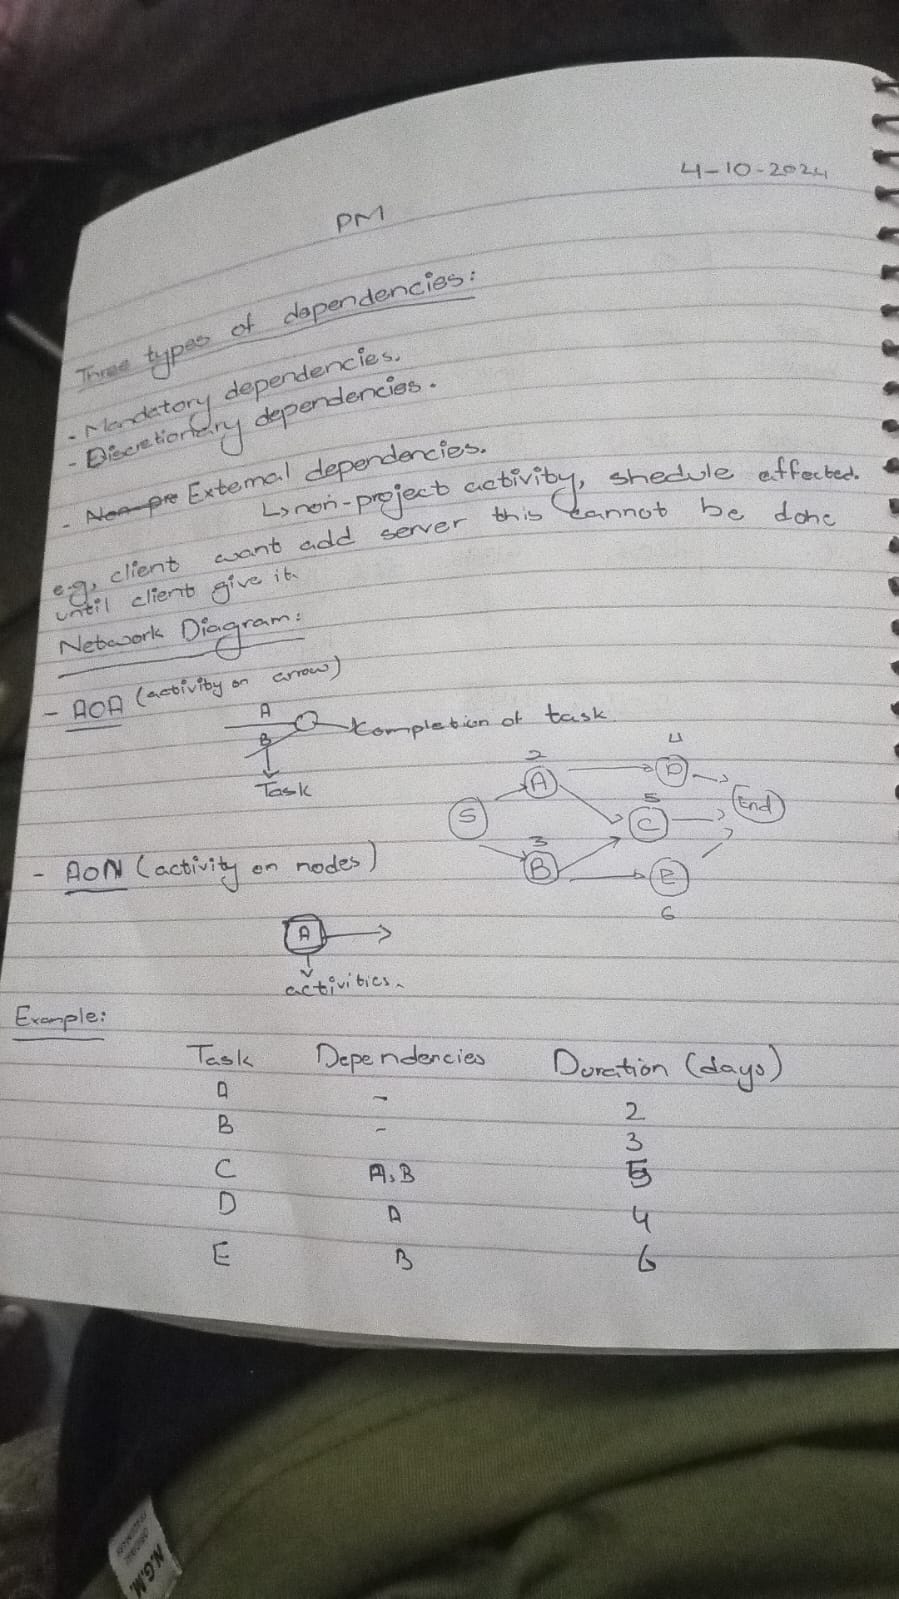 4-10-2024
PM
Three types of dependencies:
- Mandatory dependencies.
- Discretionary dependencies.
- Non-pre External dependencies.
↳ non-project activity, shedule effected.
e.g, client want add server this cannot be done
until client give it.
Network Diagram:
- AOA (activity on arrow)
A
B
Completion of task
Task
S
2
A
3
B
4
D
5
C
E
6
End
- AON (activity on nodes)
A
activities.
Example:
Task Dependencies Duration (days)
A - 2
B - 3
C A,B 5
D A 4
E B 6
N.G.M.